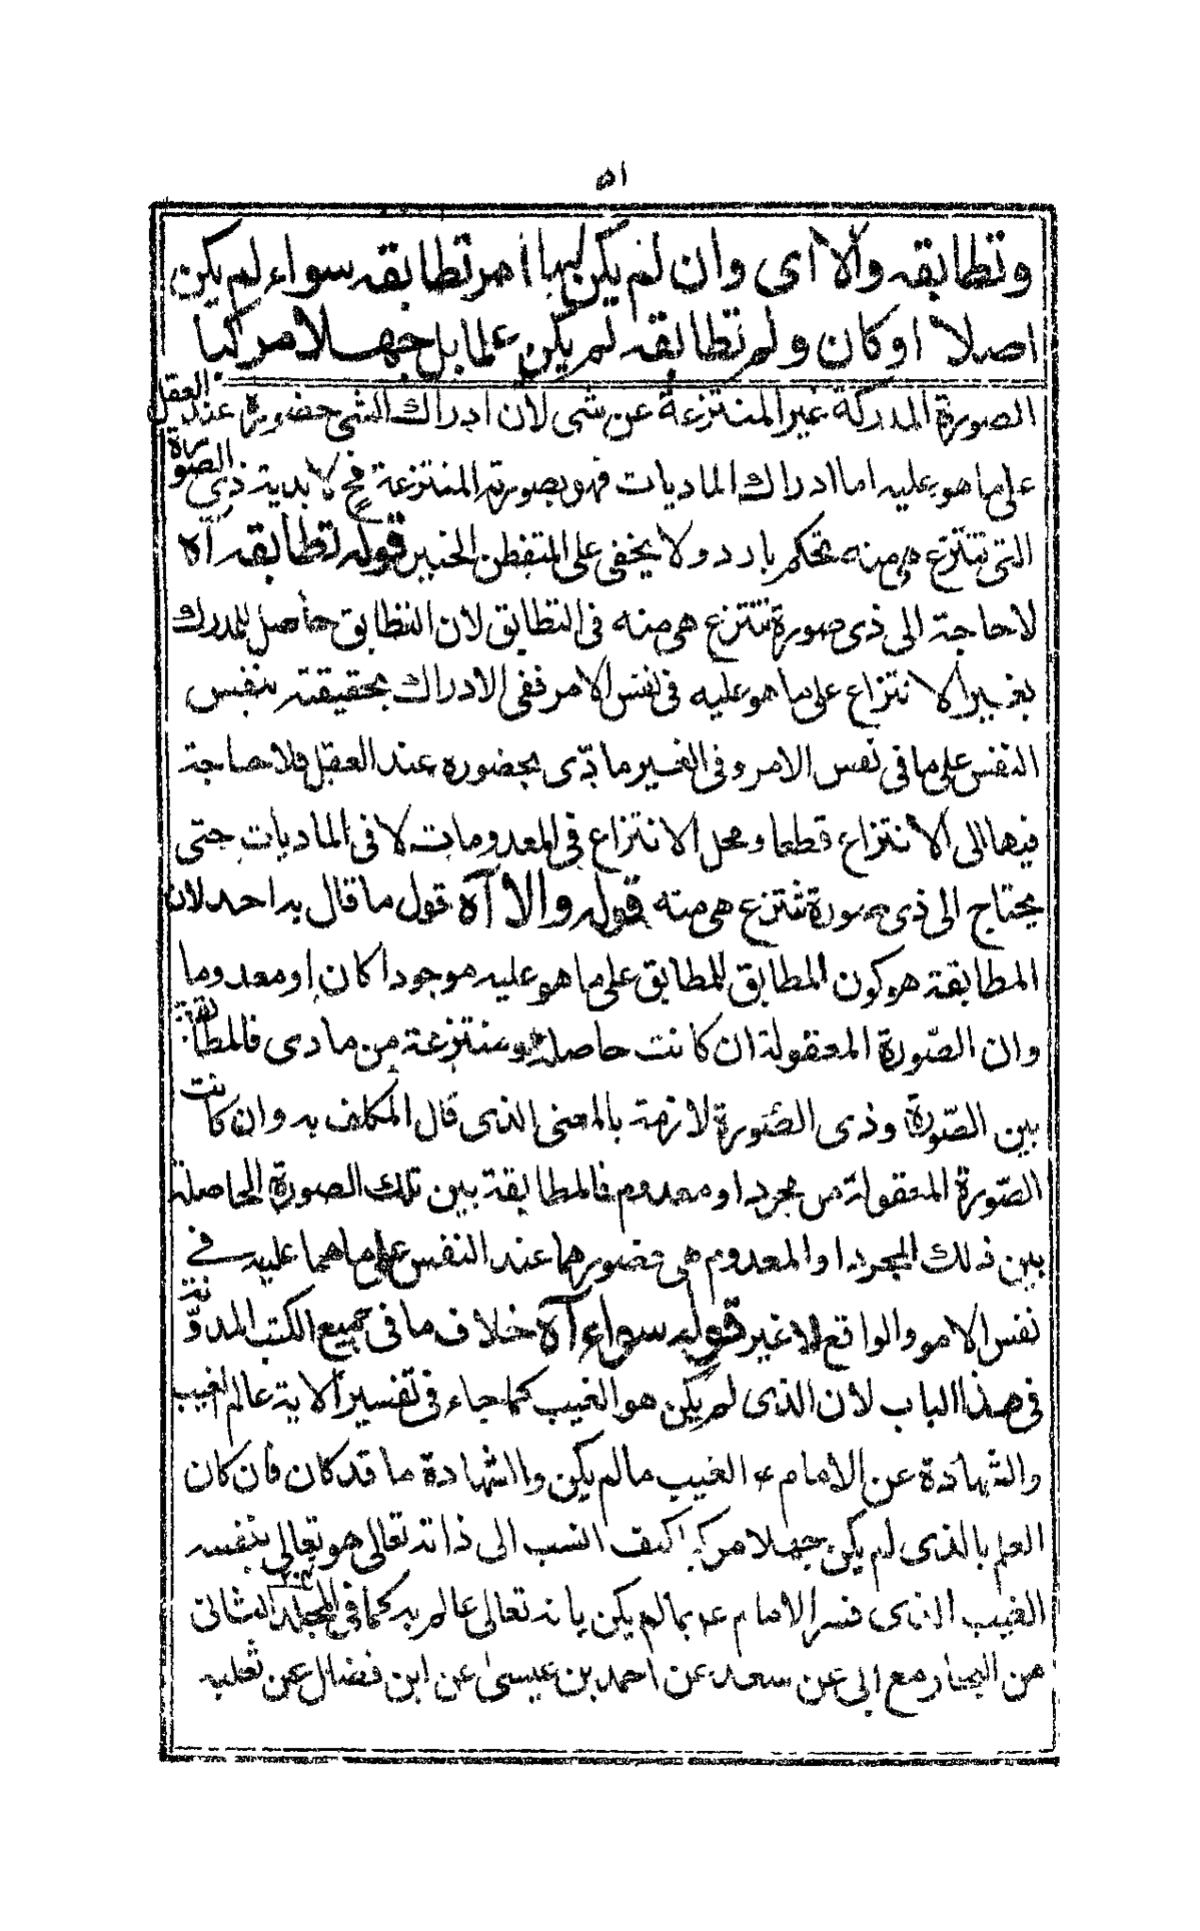 ٥١
وتطابقه والا اى وان لم يكن لها امر تطابقه سواء لم يكن
اصلا اوكان ولم تطابقه لم يكن علما بل جهلا مركبا
الصورة المدركة غير المنتزعة عن شى لان ادراك الشى حضوره عند العقل
على ما هو عليه اما ادراك الماديات فهو بصورته المنتزعة فح لا بدية ذي الصورة
التى تنتزع هى منه تحكم بارد ولا يخفى على المتفطن الخبير قوله تطابقه آه
لا حاجة الى ذى صورة تنتزع هى منه فى التطابق لان التطابق حاصل للمدرك
بغير الانتزاع على ما هو عليه فى نفس الامر ففى الادراك بحقيقته بنفس
النفس على ما فى نفس الامر وفى الغير مادّى بحضوره عند العقل فلا حاجة
فيها الى الانتزاع قطعا ومحل الانتزاع فى المعدومات لا فى الماديات حتى
يحتاج الى ذى صورة تنتزع هى منه قوله والا آه قول ما قال به احد لان
المطابقة هو كون المطابق للمطابق على ما هو عليه موجودا كان او معدوما
وان الصّورة المعقولة ان كانت حاصلة ومنتزعة من مادى فالمطابقة
بين الصّورة وذى الصّورة لازمة بالمعنى الذى قال المكلف به وان كانت
الصّورة المعقولة من مجرد او معدوم فالمطابقة بين تلك الصورة الحاصلة
بين ذلك المجرد او المعدوم هى حضورهما عند النفس على ما هما عليه فى
نفس الامر والواقع لا غير قوله سواء آه خلاف ما فى جميع الكتب المدوّنة
فى هذا الباب لان الذى لم يكن هو الغيب كما جاء فى تفسير الاية عالم الغيب
والشهادة عن الامام ع الغيب ما لم يكن والشهادة ما قد كان فان كان
العلم بالذى لم يكن جهلا مركبا كيف انسب الى ذاته تعالى هو تعالى بنفسه
الغيب الذى فسر الامام ع بما لم يكن بانه تعالى عالم به كما فى المجلد الثانى
من البحار مع ابى عن سعد عن احمد بن عيسى عن ابن فضال عن ثعلبه